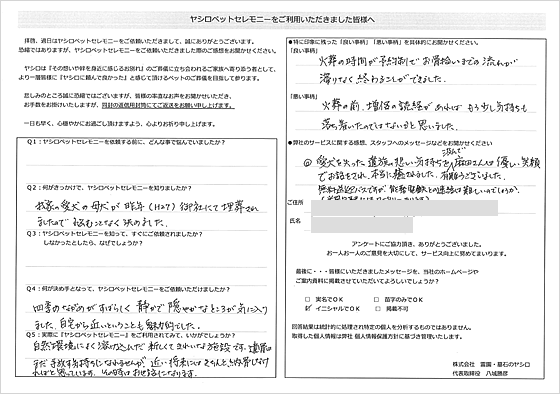 ヤシロペットセレモニーをご利用いただきました皆様へ
拝啓、過日はヤシロペットセレモニーをご依頼いただきまして、誠にありがとうございます。
恐縮ではありますが、ヤシロペットセレモニーをご依頼いただきました際のご感想をお聞かせください。
ヤシロは『その想いや絆を身近に感じるお別れ』のご葬儀に立ち会われるご家族へ寄り添う者として、
より一層皆様に『ヤシロに頼んで良かった』と感じて頂けるペットのご葬儀を目指して参ります。
悲しみのところ誠に恐縮ではございますが、皆様の率直なお声をお聞かせいただき、
お手数をお掛けいたしますが、同封の返信用封筒にてご返送をお願い申し上げます。
一日も早く、心穏やかにお過ごし頂けますよう、心よりお祈り申し上げます。
Q1：ヤシロペットセレモニーを依頼する前に、どんな事で悩んでいましたか？
Q2：何がきっかけで、ヤシロペットセレモニーを知りましたか？
我家の愛犬の母犬が昨年(H27)御社にて埋葬され
ましたので悩むことなく決めました。
Q3：ヤシロペットセレモニーを知って、すぐにご依頼されましたか？
しなかったとしたら、なぜでしょうか？
Q4：何が決め手となって、ヤシロペットセレモニーをご依頼いただけましたか？
四季のながめがすばらしく静かで隠やかなところが気に入り
ました、自宅から近いということも魅力的でした。
Q5：実際に『ヤシロペットセレモニー』をご利用されてみて、いかがでしょうか？
自然環境によく溶け込んだ新しくてきれいな施設です。遺骨は
まだ手放す気持ちになれませんが、近い将来にはきちんと納骨しなけ
ればと思っています。その時はお世話になります。
●特に印象に残った「良い事柄」「悪い事柄」を具体的にお聞かせください。
「良い事柄」
火葬の時間が予約制でお骨拾いまでの流れが
滞りなく終わることができました。
「悪い事柄」
火葬の前、増侶の読経があればもう少し気持ちも
落ち着いたのではないかと思いました。
●弊社のサービスに関する感想、スタッフへのメッセージなどをお聞かせください
◎ 愛犬を失った遺族の悲しい気持ちを汲んで麻田さんは優しい笑顔
でお話をされ、本当に癒されました。有難うございました。
ご住所
氏名
アンケートにご協力頂き、ありがとうございました。
お一人お一人のご意見を大切にして、サービス向上に努めてまいります。
最後に・・・皆様にいただきましたメッセージを、当社のホームページや
ご案内資料に掲載させていただいてよろしいでしょうか？
□ 実名でOK □ 苗字のみでOK
☑ イニシャルでOK □ 掲載不可
回答結果は統計的に処理され特定の個人を分析するものではありません。
取得した個人情報は弊社 個人情報保護方針に基づき管理いたします。
株式会社 霊園・墓石のヤシロ
代表取締役 八城勝彦